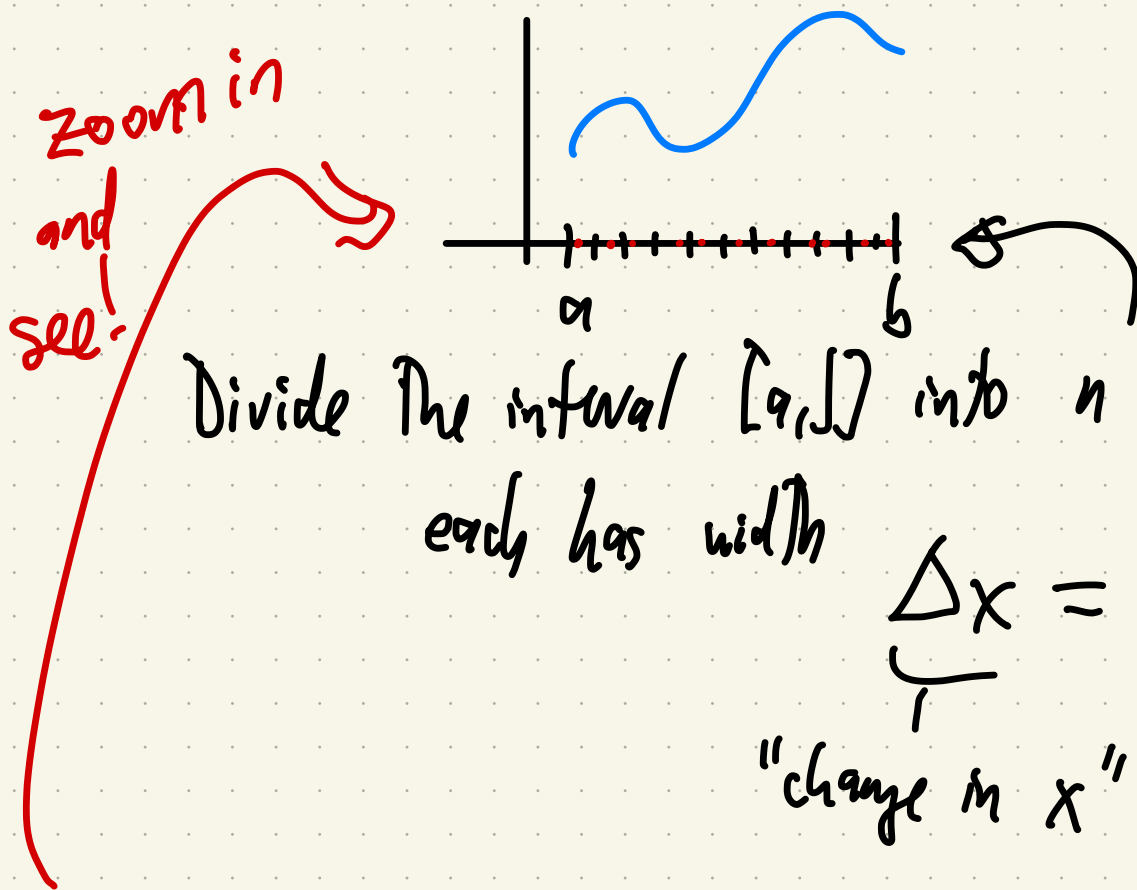 zoom in
and
see:
a b
Divide the interval [a,b] into n
each has width
Δx =
"change in x"